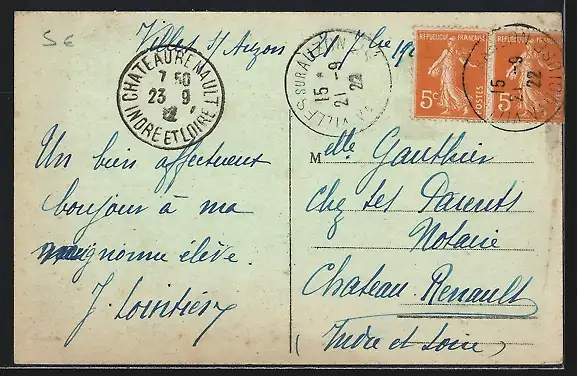 5 c
Villes s/ Auzon 21 7bre 192
CHATEAURENAULT
7 50
23 9
22
INDRE ET LOIRE
VILLES SUR AUZON
15 *
21 -9
22
REPUBLIQUE FRANÇAISE
5c
POSTES
REPUBLIQUE FRANÇAISE
5
15 *
21 -9
22
Un bien affectueux
bonjour à ma
mignonne élève.
Melle Gauthier
Chez ses Parents
Notaire
Chateau-Renault
(Indre et Loire)